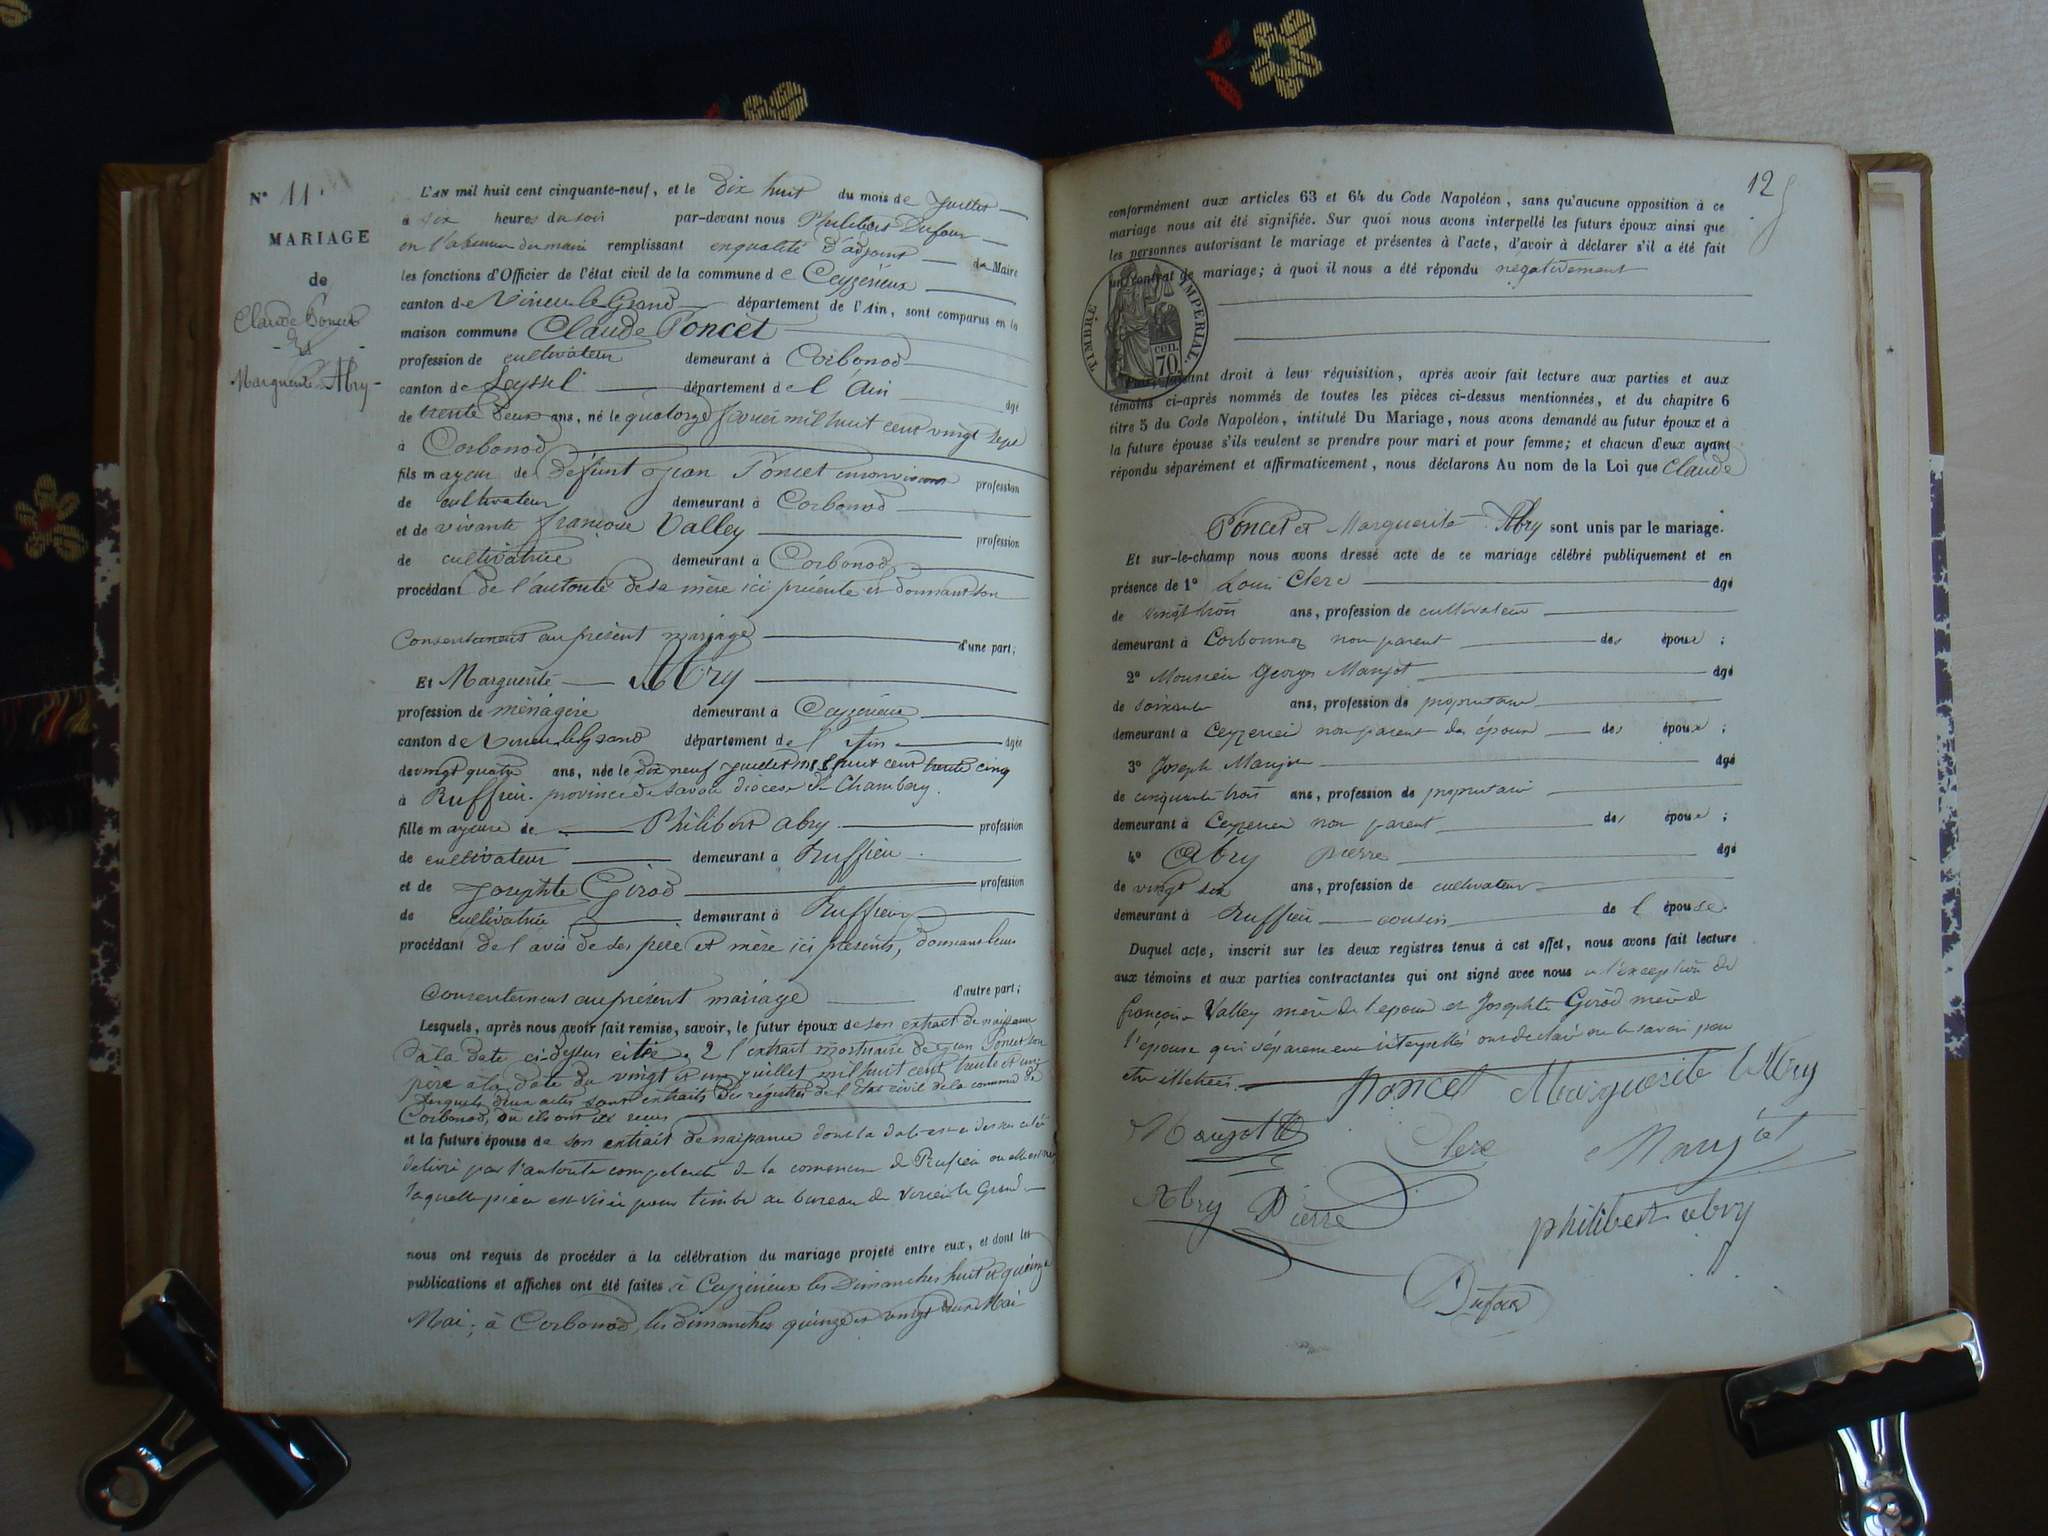 N° 11.
MARIAGE
de
Claude Poncet
et
Marguerite Abry
L'AN mil huit cent cinquante-neuf, et le Dix huit du mois de Juillet
à six heures du soir par-devant nous Philibert Dufour
en l'absence du maire remplissant en qualité d'adjoint du Maire
les fonctions d'Officier de l'état civil de la commune de Ceyzérieux
canton de Virieu le Grand département de l'Ain, sont comparus en la
maison commune Claude Poncet
profession de cultivateur demeurant à Corbonod
canton de Seyssel département de l'Ain âgé
de trente deux ans, né le quatorze Janvier mil huit cent vingt sept
à Corbonod
fils majeur de Défunt Jean Poncet profession
de cultivateur demeurant à Corbonod
et de vivante françoise Valley profession
de cultivatrice demeurant à Corbonod
procédant de l'autorité de sa mère ici présente et donnant son
Consentement au présent mariage d'une part;
Et Marguerite Abry
profession de ménagère demeurant à Ceyzérieux
canton de Virieu le Grand département de l'Ain âgée
de vingt quatre ans, née le dix neuf juillet mil huit cent trente cinq
à Ruffieu province de Savoie diocèse de Chambéry.
fille majeure de Philibert Abry profession
de cultivateur demeurant à Ruffieu
et de Josephte Girod profession
de cultivatrice demeurant à Ruffieux
procédant de l'avis de ses père et mère ici présents, donnant leur
Consentement au présent mariage d'autre part;
Lesquels, après nous avoir fait remise, savoir, le futur époux de son extrait de naissance
à la date ci-dessus citée, 2 l'extrait mortuaire de Jean Poncet son
père à la date du vingt et un juillet mil huit cent trente et un
lesquels deux actes sont extraits des régistres de l'Etat civil de la commune de
Corbonod, où ils ont été reçus
et la future épouse de son extrait de naissance dont la date est ci dessus citée
délivré par l'autorité compétente de la commune de Rufieu où elle est née
laquelle pièce est visée pour timbre au bureau de Virieu le Grand
nous ont requis de procéder à la célébration du mariage projeté entre eux, et dont les
publications et affiches ont été faites à Ceyzérieux les Dimanches huit et quinze
Mai; à Corbonod, les dimanches quinze et vingt deux Mai
12
conformément aux articles 63 et 64 du Code Napoléon, sans qu'aucune opposition à ce
mariage nous ait été signifiée. Sur quoi nous avons interpellé les futurs époux ainsi que
les personnes autorisant le mariage et présentes à l'acte, d'avoir à déclarer s'il a été fait
un contrat de mariage; à quoi il nous a été répondu négativement
TIMBRE IMPERIAL.
CEN. 70
faisant droit à leur réquisition, après avoir fait lecture aux parties et aux
témoins ci-après nommés de toutes les pièces ci-dessus mentionnées, et du chapitre 6
titre 5 du Code Napoléon, intitulé Du Mariage, nous avons demandé au futur époux et à
la future épouse s'ils veulent se prendre pour mari et pour femme; et chacun d'eux ayant
répondu séparément et affirmativement, nous déclarons Au nom de la Loi que Claude
Poncet et Marguerite Abry sont unis par le mariage.
Et sur-le-champ nous avons dressé acte de ce mariage célébré publiquement et en
présence de 1° Louis Clerc âgé
de vingt trois ans, profession de cultivateur
demeurant à Corbonnoz non parent des époux;
2° Monsieur Georges Manjot âgé
de soixante ans, profession de propriétaire
demeurant à Ceyzerieu non parent des époux des époux;
3° Joseph Manjot âgé
de cinquante trois ans, profession de propriétaire
demeurant à Ceyzerieu non parent des époux;
4° Abry pierre âgé
de vingt six ans, profession de cultivateur
demeurant à Ruffieu cousin de l'épouse.
Duquel acte, inscrit sur les deux registres tenus à cet effet, nous avons fait lecture
aux témoins et aux parties contractantes qui ont signé avec nous à l'exception de
françoise Valley mère de l'epoux et Josephte Girod mère de
l'épouse qui séparement interpellés ont déclaré ne le savoir pour
être illettrées.
Poncet Marguerite Abry
Manjot Clerc Manjot
Abry Pierre
philibert abry
Dufour